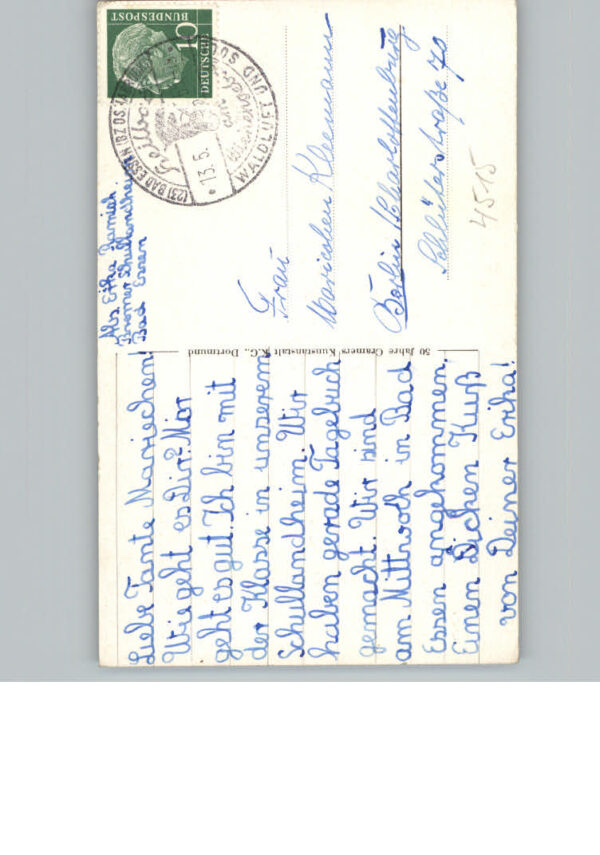 Liebe Tante Mariechen!
Wie geht es Dir? Mir
geht es gut. Ich bin mit
der Klasse in unserem
Schullandheim. Wir
haben gerade Tagebuch
gemacht. Wir sind
am Mittwoch in Bad
Essen angekommen.
Einen Dicken Kuß
von Deiner Erika!
50 Jahre Cramers Kunstanstalt K.G., Dortmund
Abs. Erika
Bremer Schullandheim
Bad Essen
DEUTSCHE
BUNDESPOST
10
(23) BAD ESSEN (BZ OSNABRÜCK)
13.5.
WALDLUFT UND
Frau
Mariechen Kleemann
Berlin Charlottenburg
Schlüterstraße 70
4515